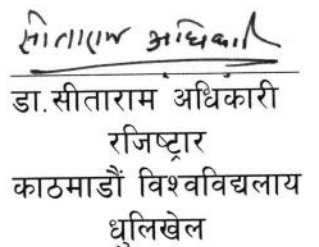 सीताराम अधिकारी
डा.सीताराम अधिकारी
रजिष्ट्रार
काठमाडौं विश्वविद्यलाय
धुलिखेल